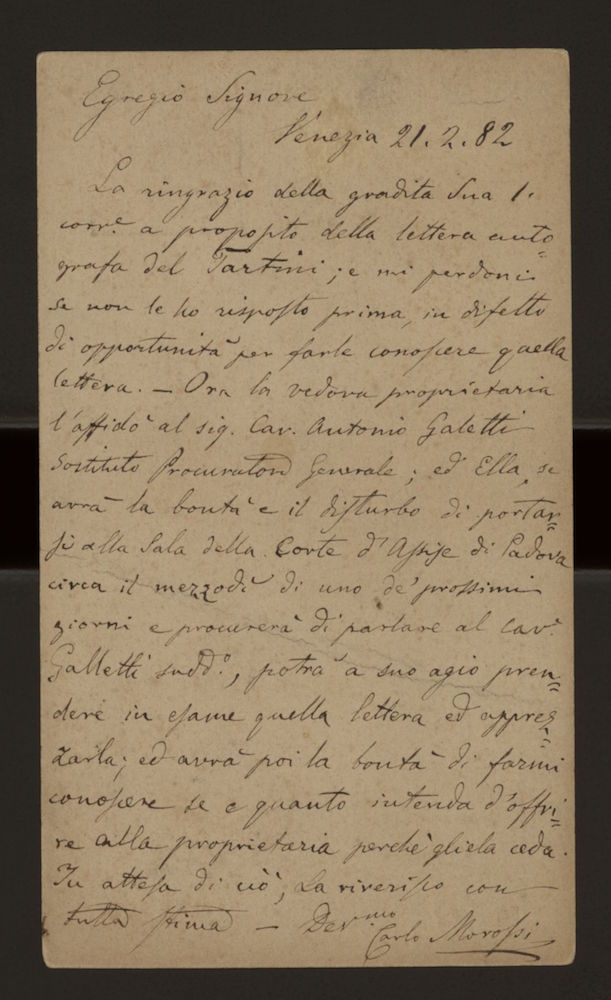 Egregio Signore
Venezia 21.2.82
La ringrazio della gradita Sua 1.
corr.e a proposito della lettera auto=
grafa del Tartini; e mi perdoni
se non le ho risposto prima, in difetto
di opportunità per farle conoscere quella
lettera. — Ora la vedova proprietaria
l'affidò al sig. Cav. Antonio Galetti
Sostituto Procuratore Generale; ed Ella, se
avrà la bontà e il disturbo di portar=
si alla Sala della Corte d'Assise di Padova
circa il mezzodì di uno de' prossimi
giorni e procurerà di parlare al Cav.r
Galletti sudd.o, potrà a suo agio pren=
dere in esame quella lettera ed apprez=
zarla; ed avrà poi la bontà di farmi
conoscere se e quanto intenda d'offri=
re alla proprietaria perchè gliela ceda.
In attesa di ciò, La riverisco con
tutta stima — Dev.mo
Carlo Morossi